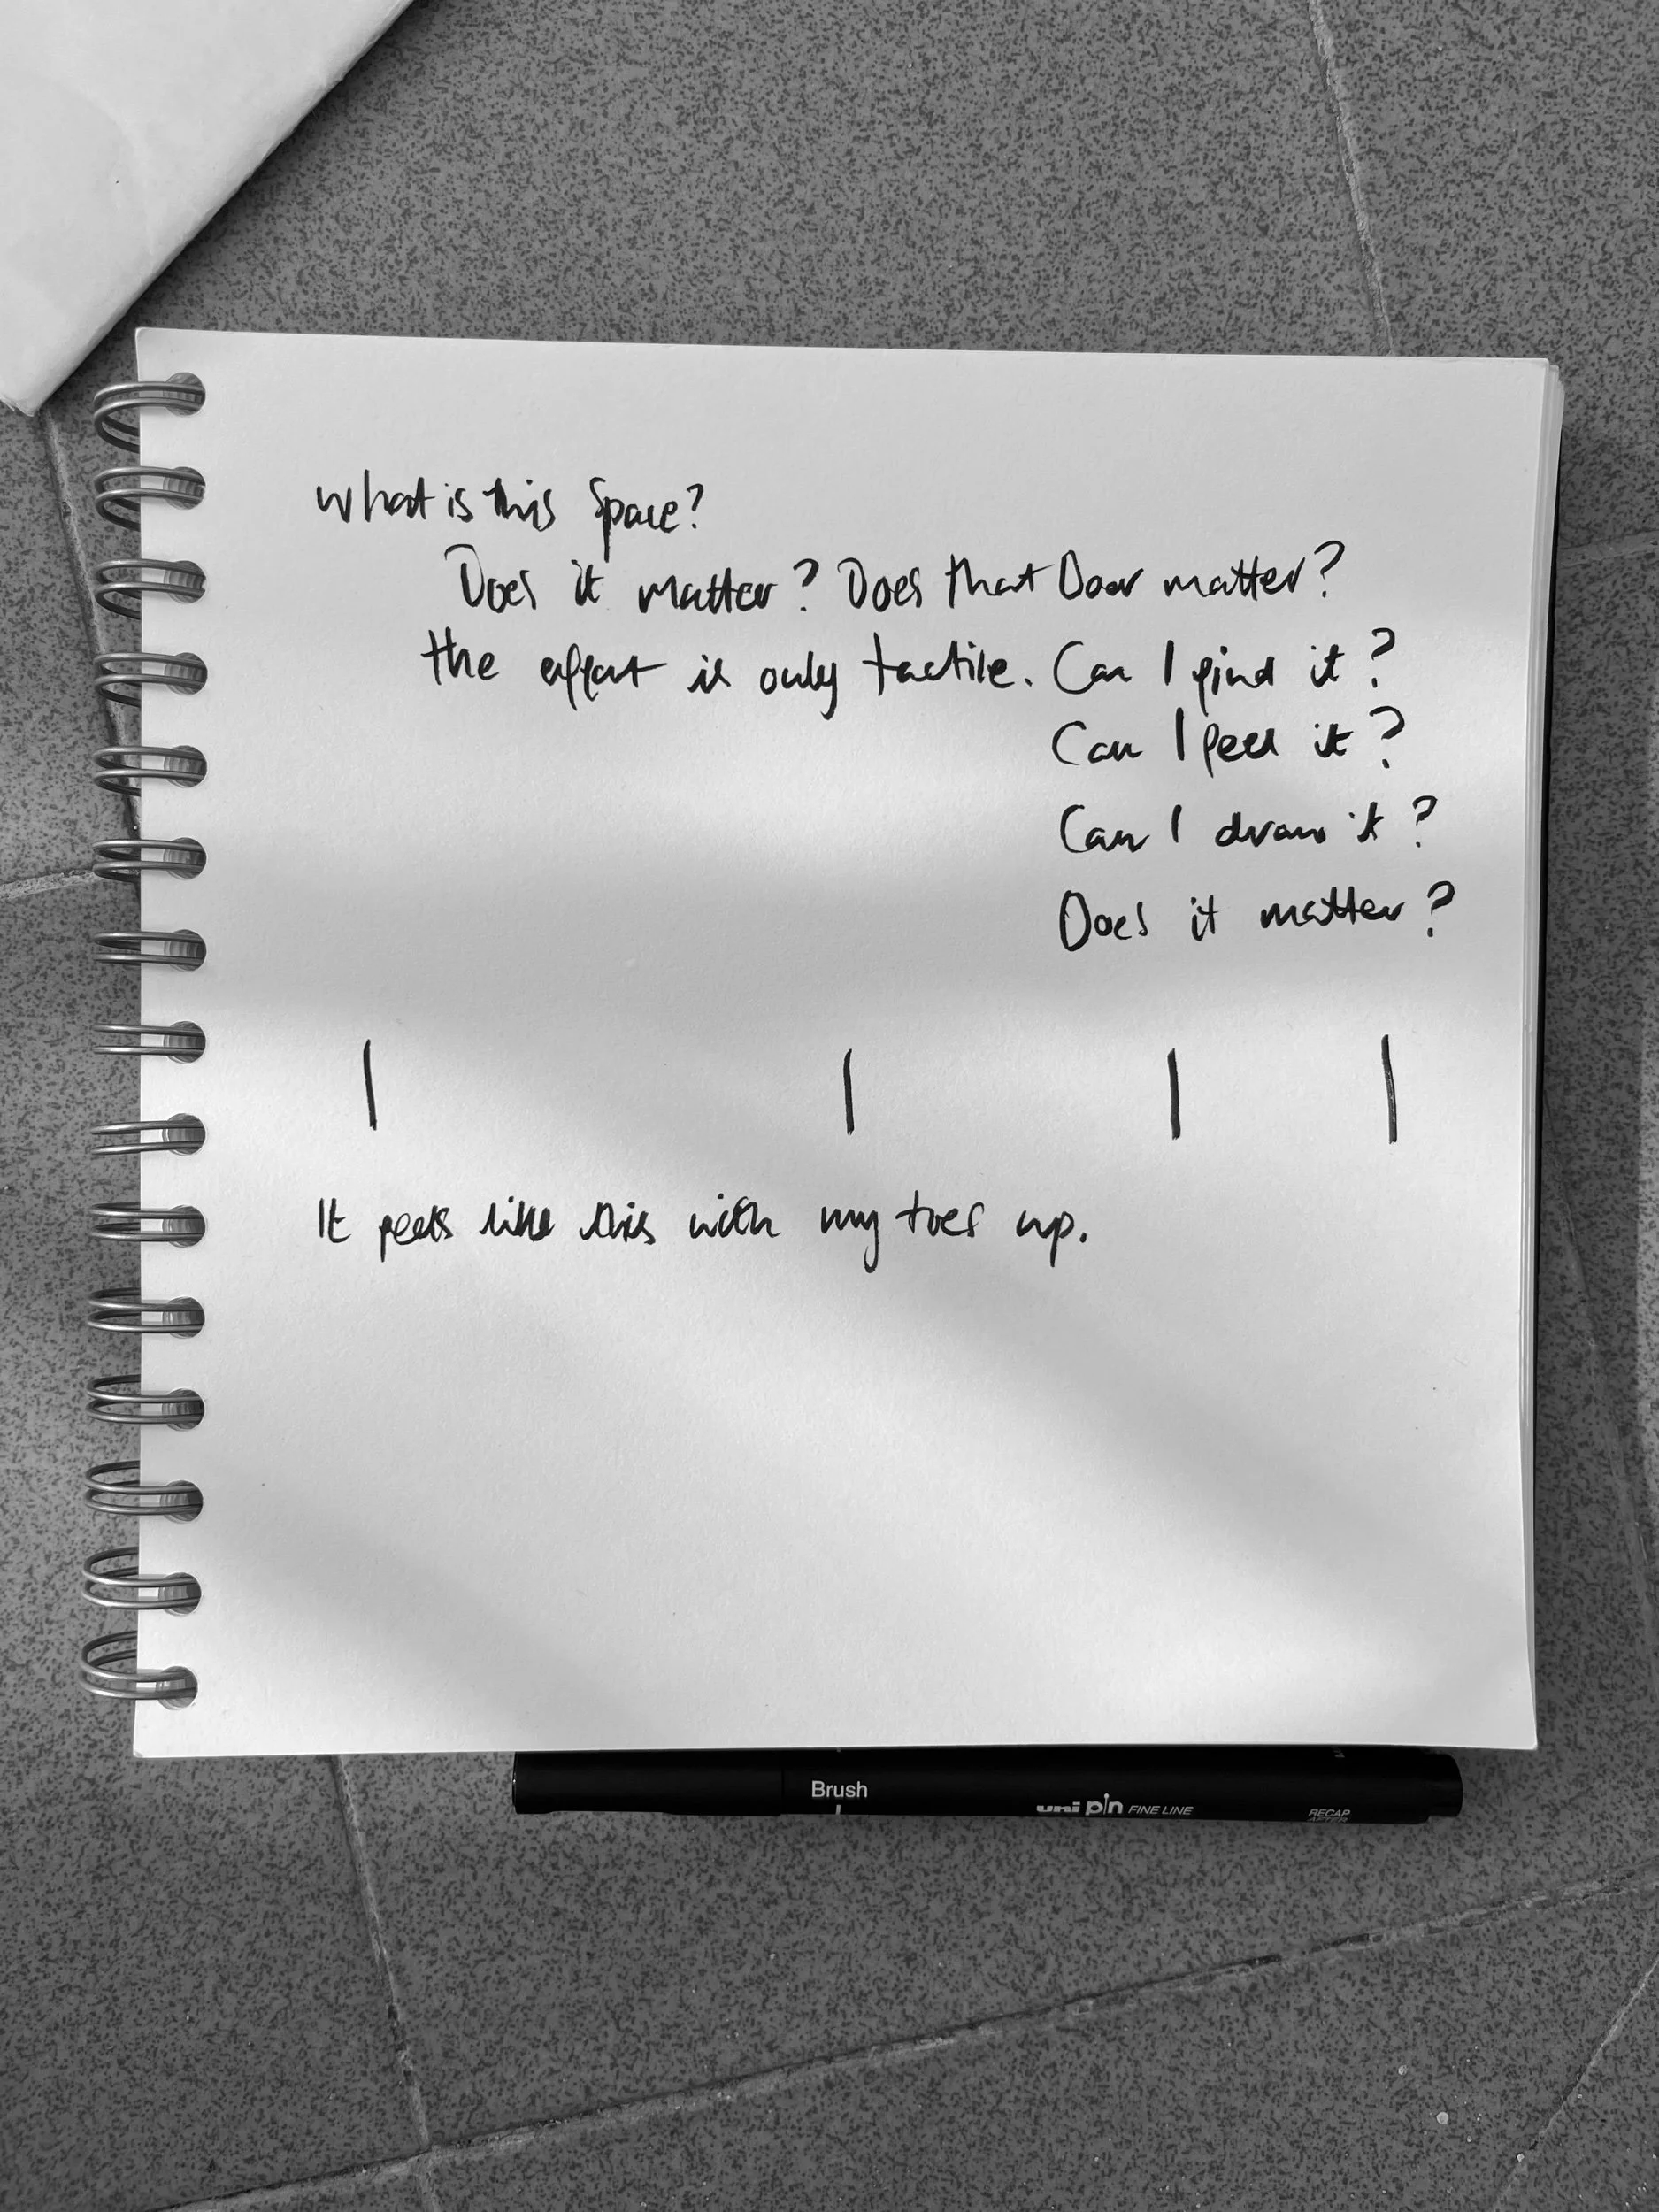 What is this Space?
Does it matter? Does that Door matter?
the effort is only tactile. Can I find it?
Can I feel it?
Can I draw it?
Does it matter?
It feels like this with my toes up.
Brush
uni pin FINE LINE
RECAP
AFTER